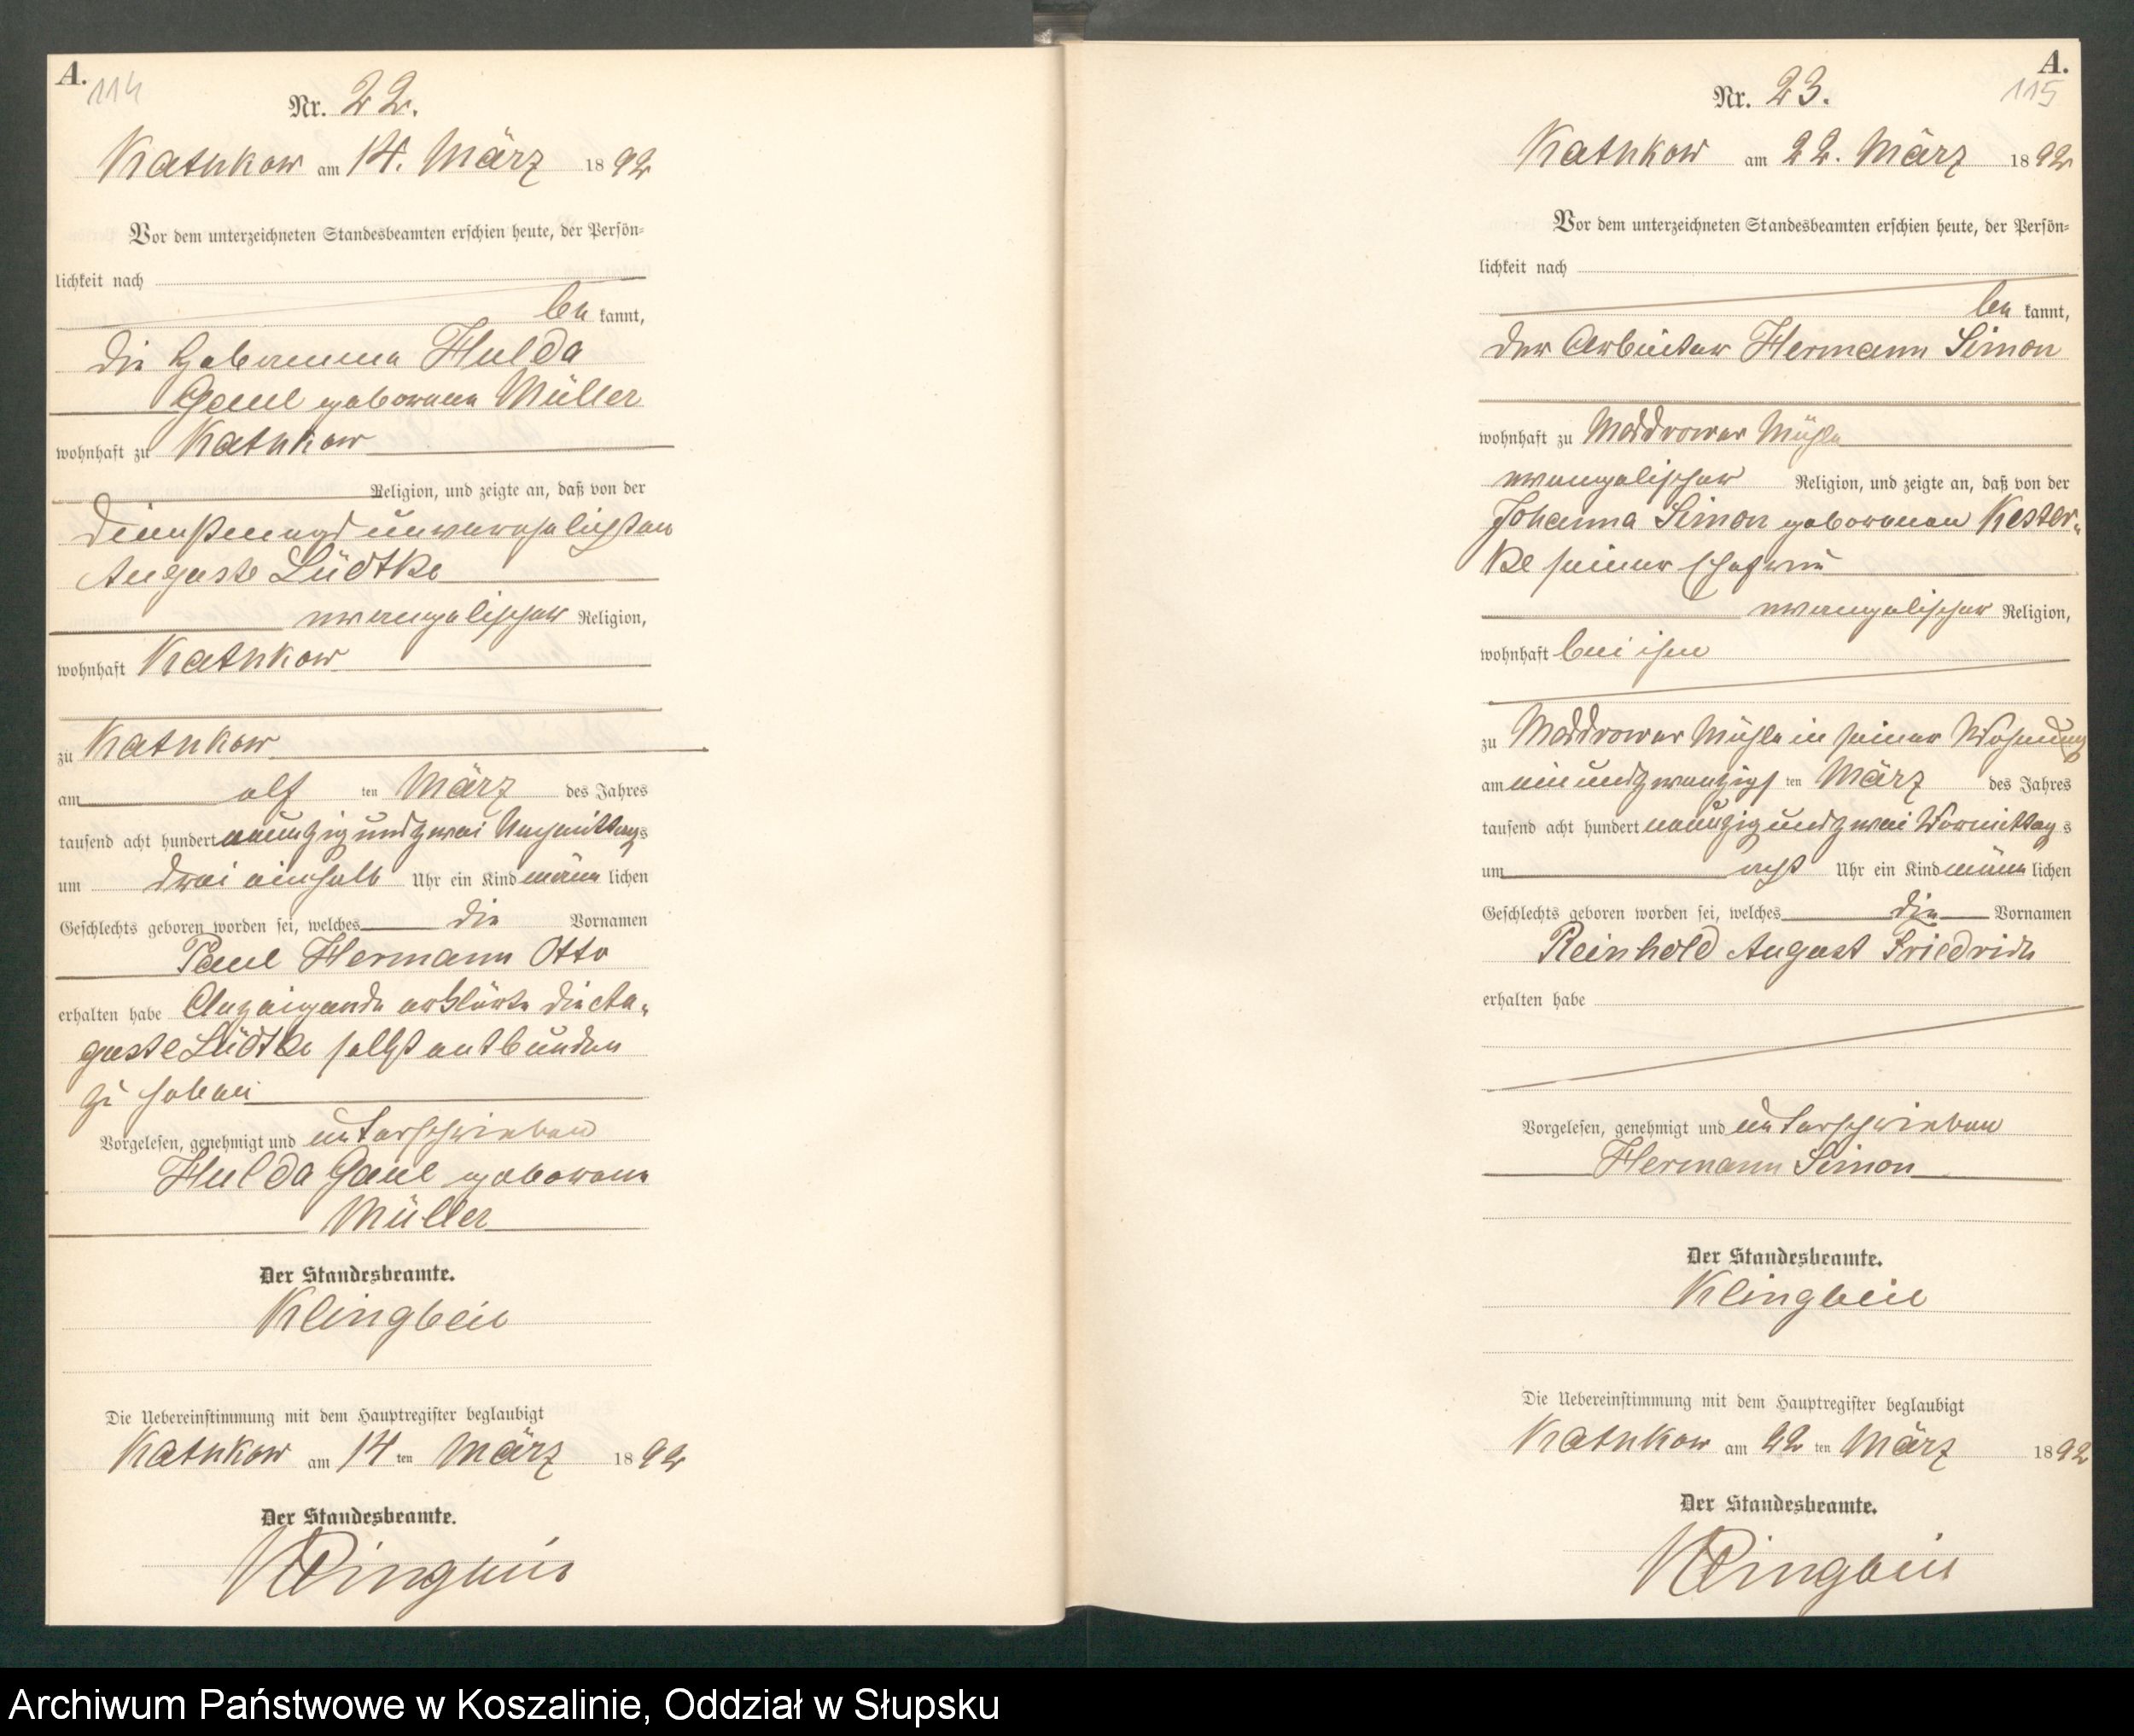 A.
114
Nr. 22.
Kathkow am 14. März 1892
Vor dem unterzeichneten Standesbeamten erschien heute, der Persön-
lichkeit nach
be kannt,
die Hebamme Hulda
Gaul geborene Müller
wohnhaft zu Kathkow
Religion, und zeigte an, daß von der
Dienstmagd unverehelichten
Auguste Lüdtke
evangelischer Religion,
wohnhaft Kathkow
zu Kathkow
am elf ten März des Jahres
tausend acht hundert neunzig und zwei Nachmittags
um drei einhalb Uhr ein Kind männ lichen
Geschlechts geboren worden sei, welches die Vornamen
Paul Hermann Otto
erhalten habe Anzeigende erklärte die Au-
guste Lüdtke selbst entbunden
zu haben
Vorgelesen, genehmigt und unterschrieben
Hulda Gaul geborene
Müller
Der Standesbeamte.
Klingbeil
Die Uebereinstimmung mit dem Hauptregister beglaubigt
Kathkow am 14 ten März 1892
Der Standesbeamte.
Klingbeil
A.
115
Nr. 23.
Kathkow am 22. März 1892
Vor dem unterzeichneten Standesbeamten erschien heute, der Persön-
lichkeit nach
be kannt,
der Arbeiter Hermann Simon
wohnhaft zu Moddrower Mühle
evangelischer Religion, und zeigte an, daß von der
Johanna Simon geborenen Kester-
ke seiner Ehefrau
evangelischer Religion,
wohnhaft bei ihm
zu Moddrower Mühle in seiner Wohnung
am ein und zwanzigs ten März des Jahres
tausend acht hundert neunzig und zwei Vormittags
um acht Uhr ein Kind männ lichen
Geschlechts geboren worden sei, welches die Vornamen
Reinhold August Friedrich
erhalten habe
Vorgelesen, genehmigt und unterschrieben
Hermann Simon
Der Standesbeamte.
Klingbeil
Die Uebereinstimmung mit dem Hauptregister beglaubigt
Kathkow am 22 ten März 1892
Der Standesbeamte.
Klingbeil
Archiwum Państwowe w Koszalinie, Oddział w Słupsku